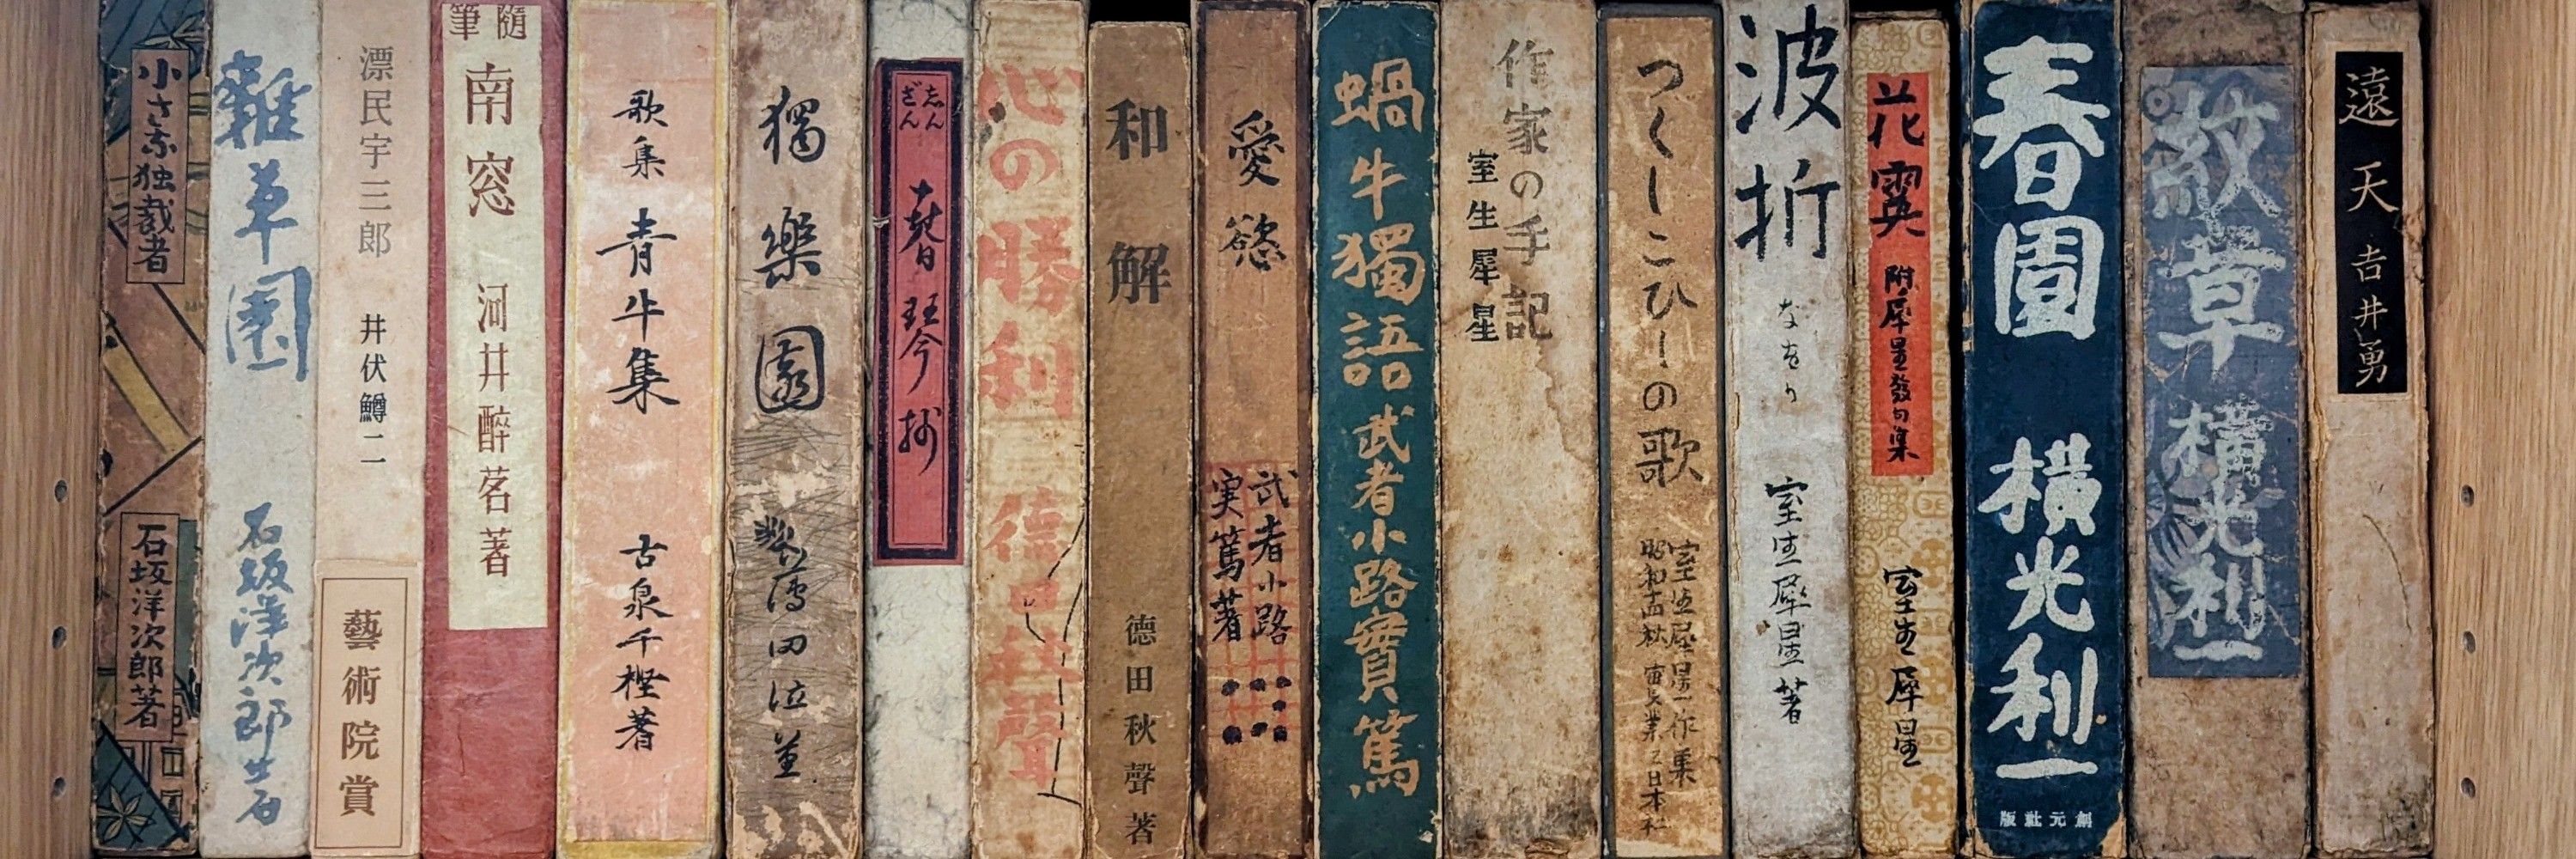 小さな独裁者
石坂洋次郎著
雜草園
石坂洋次郎
漂民宇三郎
井伏鱒二
藝術院賞
隨筆
南窓
河井醉茗著
歌集
青牛集
古泉千樫著
獨樂園
薄田泣菫
しんざん
琴抄
心の勝利
徳田秋聲
和解
徳田秋聲著
愛慾
武者小路
実篤著
蝸牛獨語
武者小路實篤
作家の手記
室生犀星
つくしこひしの歌
室生犀星作
波折
なをり
室生犀星著
花霙
附犀星發句集
室生犀星
春園
横光利一
創元社版
紋章
横光利一
遠天
吉井勇